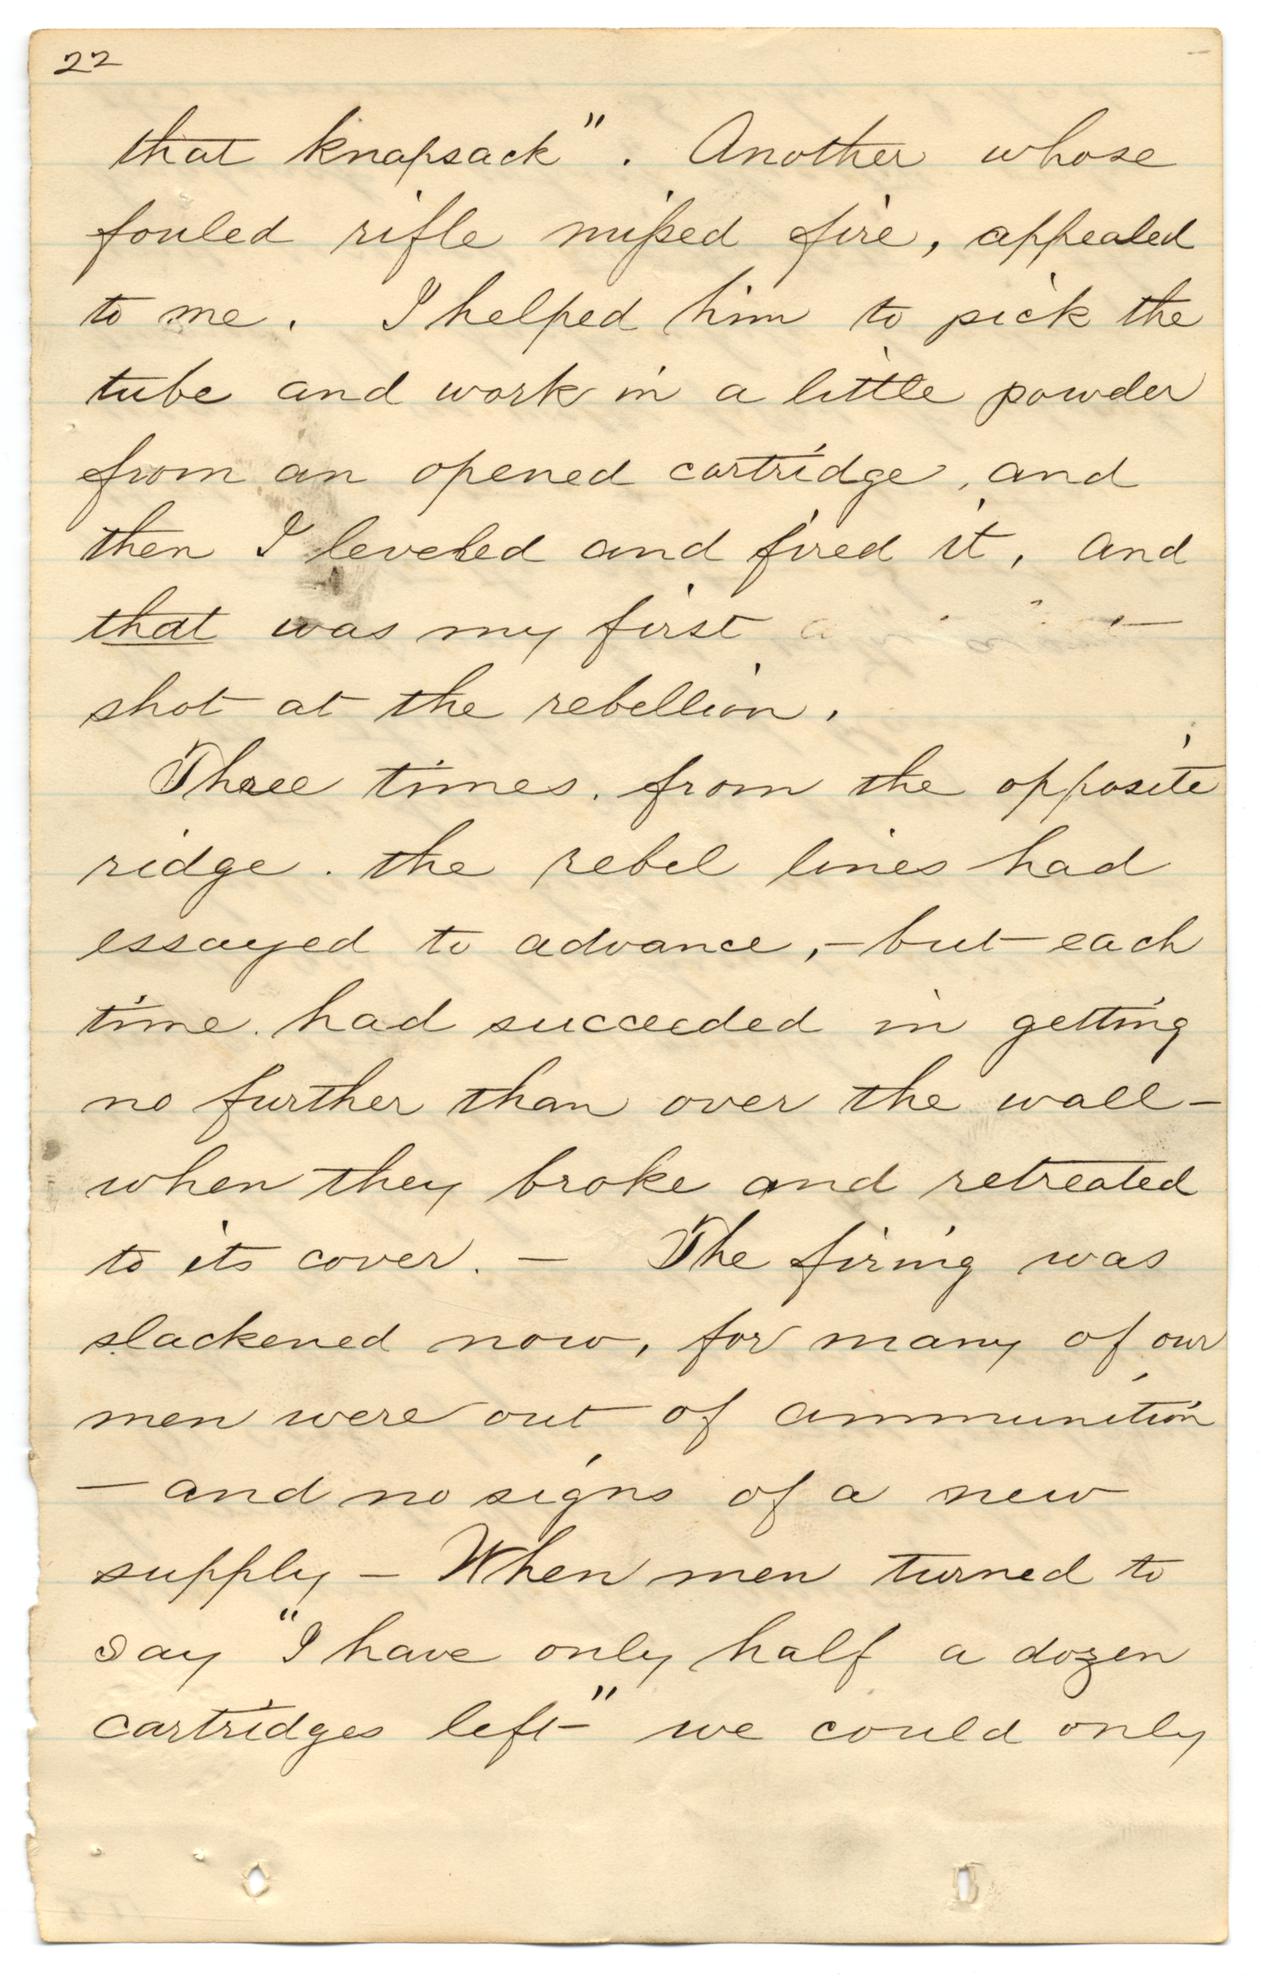 22
that knapsack". Another whose
fouled rifle missed fire, appealed
to me. I helped him to pick the
tube and work in a little powder
from an opened cartridge, and
then I leveled and fired it, and
that was my first
shot at the rebellion.
Three times. from the opposite
ridge. the rebel lines had
essayed to advance, - but each
time. had succeeded in getting
no further than over the wall -
when they broke and retreated
to its cover. - The firing was
slackened now, for many of our
men were out of ammunition
- and no signs of a new
supply - When men turned to
say "I have only half a dozen
cartridges left" we could only